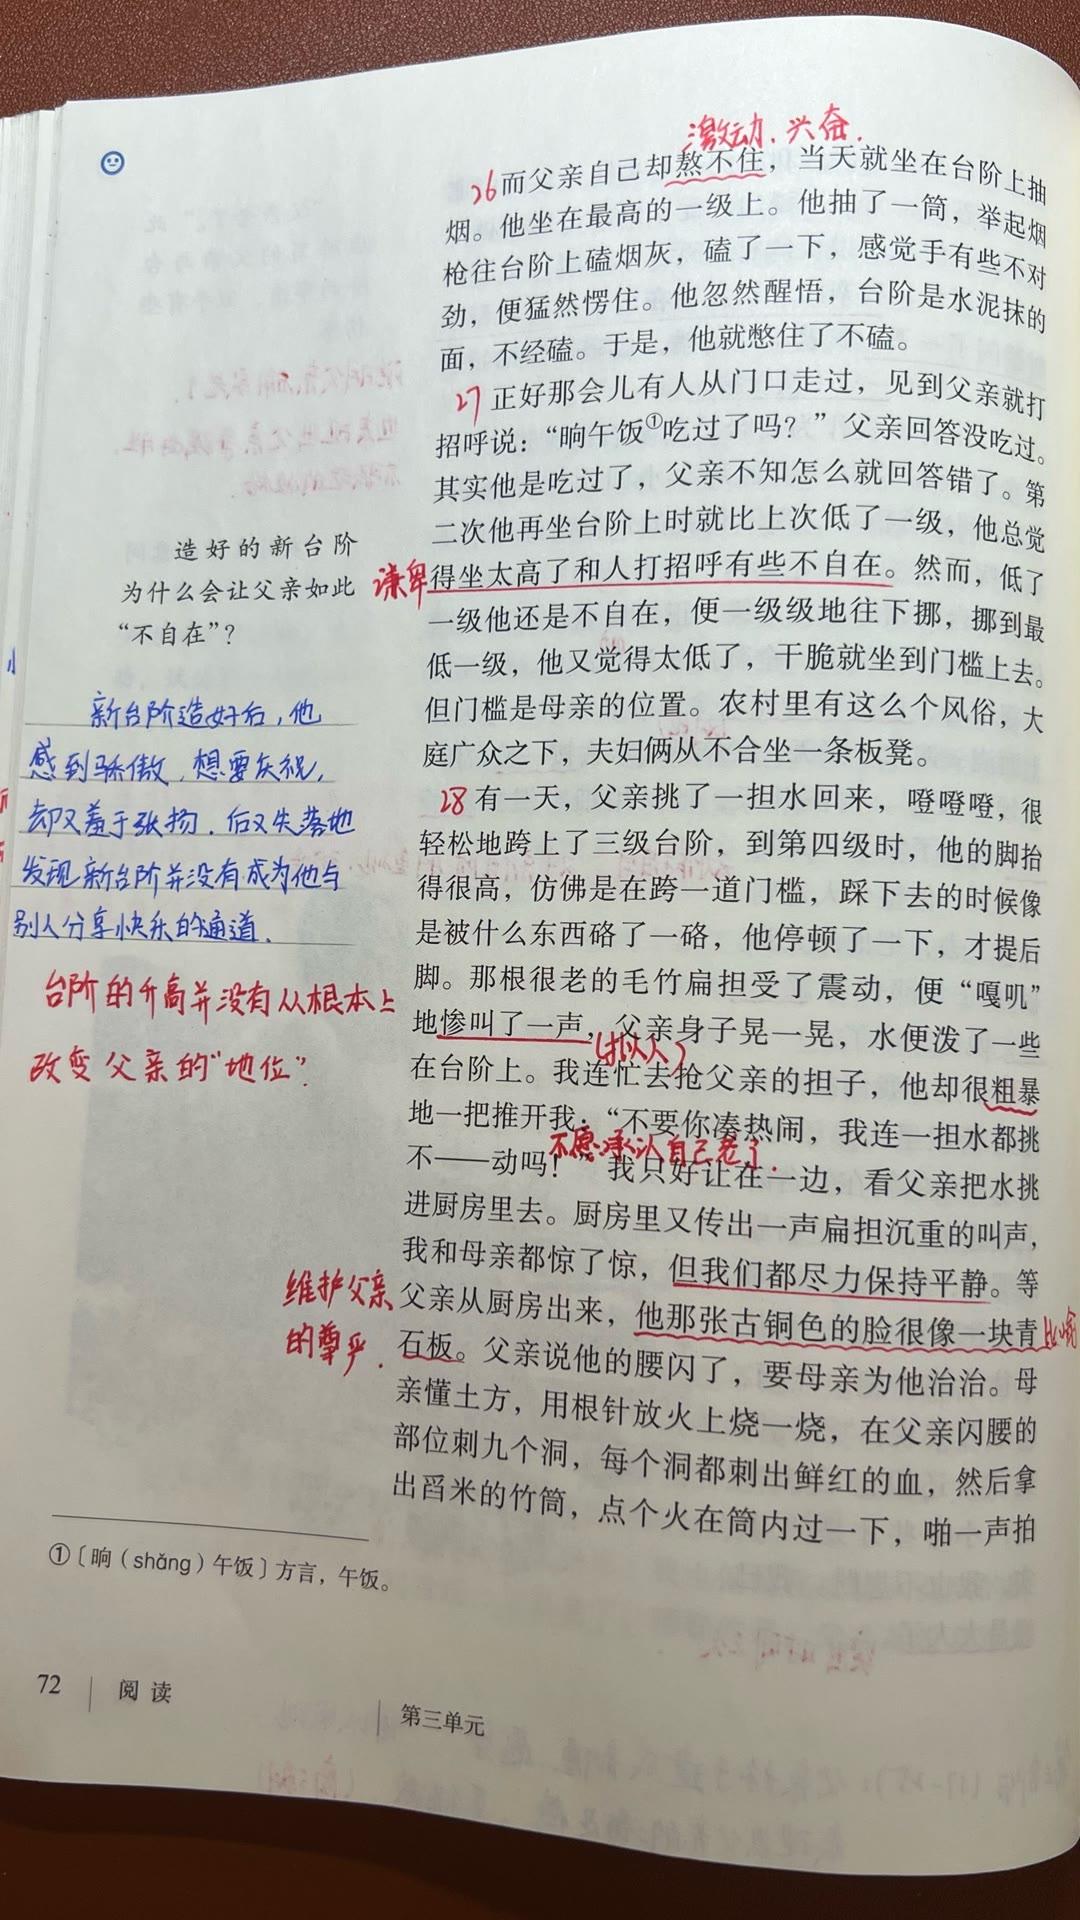 激动、兴奋.
26 而父亲自己却熬不住，当天就坐在台阶上抽
烟。他坐在最高的一级上。他抽了一筒，举起烟
枪往台阶上磕烟灰，磕了一下，感觉手有些不对
劲，便猛然愣住。他忽然醒悟，台阶是水泥抹的
面，不经磕。于是，他就憋住了不磕。
27 正好那会儿有人从门口走过，见到父亲就打
招呼说：“晌午饭①吃过了吗？”父亲回答没吃过。
其实他是吃过了，父亲不知怎么就回答错了。第
二次他再坐台阶上时就比上次低了一级，他总觉
谦卑
得坐太高了和人打招呼有些不自在。然而，低了
一级他还是不自在，便一级级地往下挪，挪到最
低一级，他又觉得太低了，干脆就坐到门槛上去。
但门槛是母亲的位置。农村里有这么个风俗，大
庭广众之下，夫妇俩从不合坐一条板凳。
28 有一天，父亲挑了一担水回来，噔噔噔，很
轻松地跨上了三级台阶，到第四级时，他的脚抬
得很高，仿佛是在跨一道门槛，踩下去的时候像
是被什么东西硌了一硌，他停顿了一下，才提后
脚。那根很老的毛竹扁担受了震动，便“嘎叽”
地惨叫了一声，父亲身子晃一晃，水便泼了一些
(拟人)
在台阶上。我连忙去抢父亲的担子，他却很粗暴
地一把推开我：“不要你凑热闹，我连一担水都挑
不愿承认自己老了.
不——动吗！”我只好让在一边，看父亲把水挑
进厨房里去。厨房里又传出一声扁担沉重的叫声，
我和母亲都惊了惊，但我们都尽力保持平静。等
维护父亲
的尊严.
父亲从厨房出来，他那张古铜色的脸很像一块青
比喻
石板。父亲说他的腰闪了，要母亲为他治治。母
亲懂土方，用根针放火上烧一烧，在父亲闪腰的
部位刺九个洞，每个洞都刺出鲜红的血，然后拿
出舀米的竹筒，点个火在筒内过一下，啪一声拍
造好的新台阶
为什么会让父亲如此
“不自在”？
新台阶造好后，他
感到骄傲，想要庆祝，
却又羞于张扬.后又失落地
发现新台阶并没有成为他与
别人分享快乐的通道.
台阶的升高并没有从根本上
改变父亲的“地位”.
①〔晌（shǎng）午饭〕方言，午饭。
72
阅读
第三单元